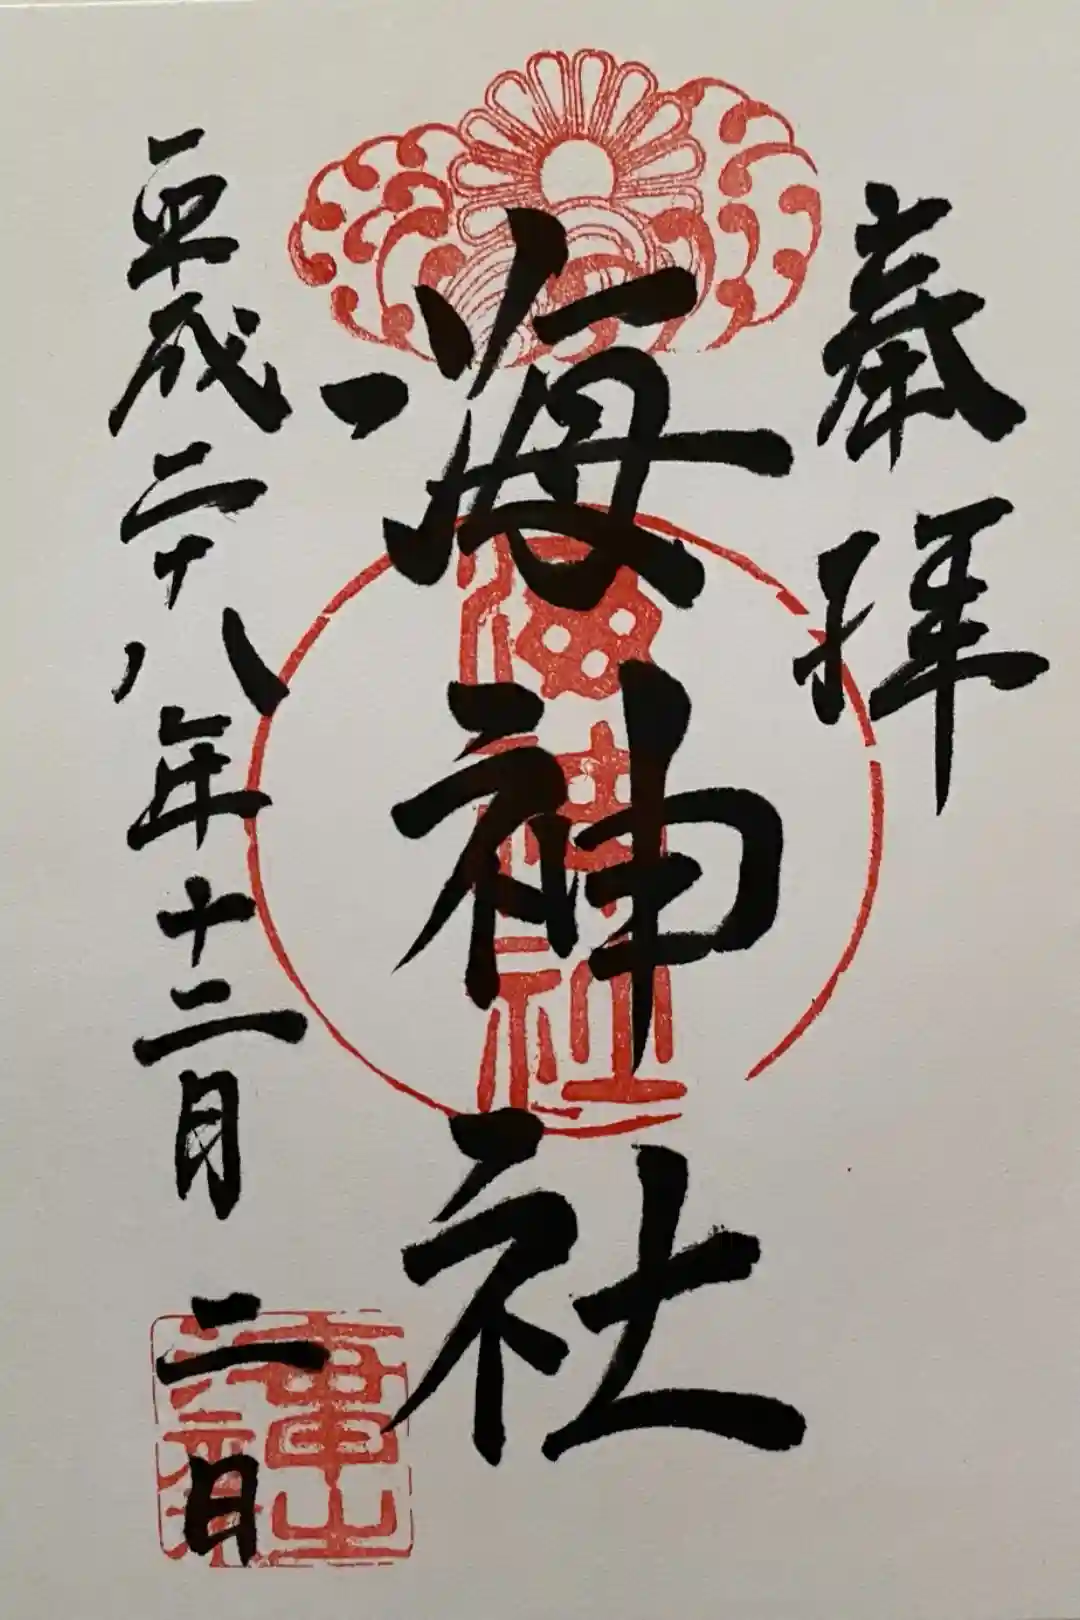 奉拝
海神社
平成二十八年十二月二日
海神社